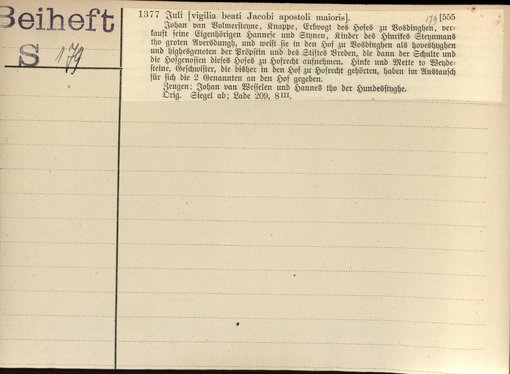 Beiheft
S 179
1377 Juli [vigilia beati Jacobi apostoli maioris]. 179 [555
Johan van Volmersteyne, Knappe, Erbvogt des Hofes zu Vosdinghen, ver-
kauft seine Eigenhörigen Hannese und Stynen, Kinder des Hinrikes Steynmans
tho groten Aversdungh, und weist sie in den Hof zu Vosdinghen als hoveshyghen
und highesgenoten der Pröpstin und des Stiftes Vreden, die dann der Schulte und
die Hofgenossen dieses Hofes zu Hofrecht aufnehmen. Hinke und Mette to Weyde-
steine, Geschwister, die bisher in den Hof zu Hofrecht gehörten, haben im Austausch
für sich die 2 Genannten an den Hof gegeben.
Zeugen: Johan van Wesselen und Hannes tho der Hundesstyghe.
Orig. Siegel ab; Lade 209, 8III.